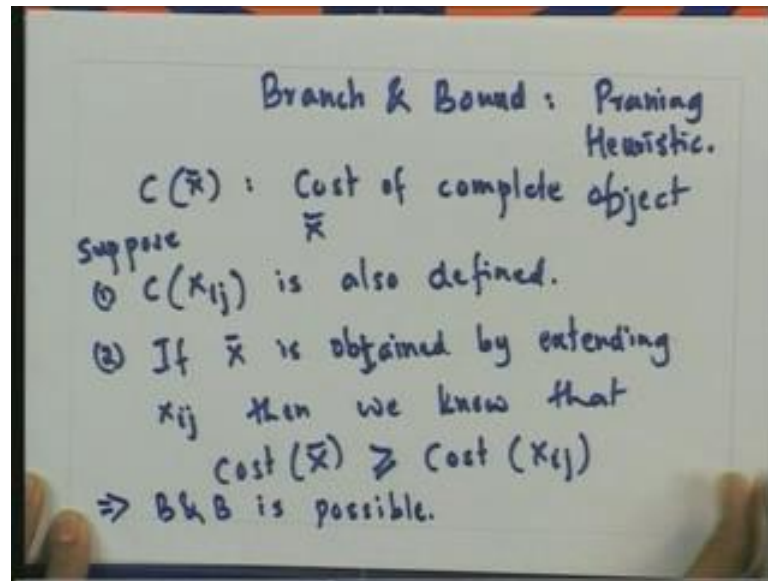 Branch & Bound : Pruning
Heuristic.
C(x̄) : Cost of complete object
x̄
Suppose
① C(xij) is also defined.
② If x̄ is obtained by extending
xij then we know that
Cost (x̄) ⩾ Cost (xij)
⇒ B&B is possible.